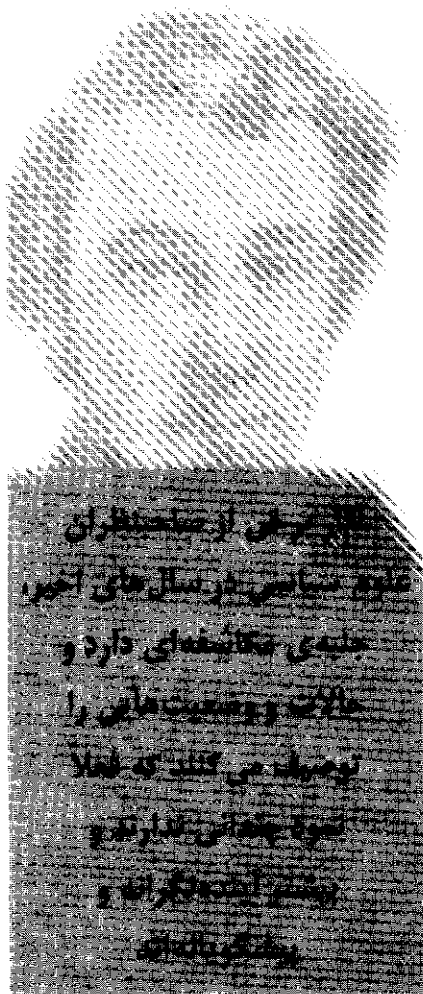 آثار برخی از صاحب‌نظران
علوم سیاسی در سال‌های اخیر،
جنبه‌ی مکاشفه‌ای دارد و
حالات و وضعیت‌هایی را
توصیف می‌کنند که فعلاً
نمود چندانی ندارند و
بیشتر آینده‌نگرانه و
پیشگویانه‌اند